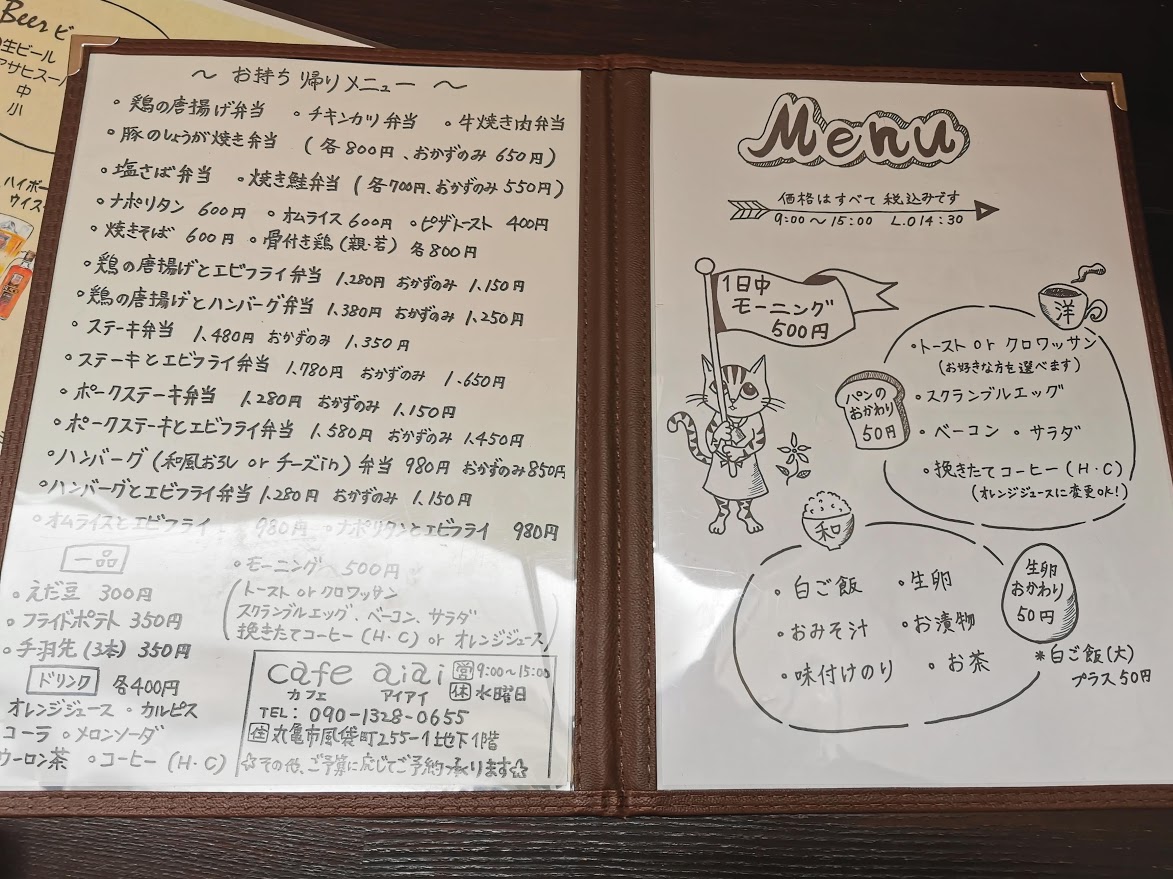 Beer ビ
生ビール
アサヒスー
中
小
ハイボー
ウイス
～ お持ち帰りメニュー ～
・鶏の唐揚げ弁当 ・チキンカツ弁当 ・牛焼き肉弁当
・豚のしょうが焼き弁当 (各800円、おかずのみ 650円)
・塩さば弁当 ・焼き鮭弁当 (各700円、おかずのみ 550円)
・ナポリタン 600円 ・オムライス 600円 ・ピザトースト 400円
・焼きそば 600円 ・骨付き鶏(親・若) 各800円
・鶏の唐揚げとエビフライ弁当 1.280円 おかずのみ 1.150円
・鶏の唐揚げとハンバーグ弁当 1.380円 おかずのみ 1.250円
・ステーキ弁当 1.480円 おかずのみ 1.350円
・ステーキとエビフライ弁当 1.780円 おかずのみ 1.650円
・ポークステーキ弁当 1.280円 おかずのみ 1.150円
・ポークステーキとエビフライ弁当 1.580円 おかずのみ 1.450円
・ハンバーグ(和風おろし or チーズin)弁当 980円 おかずのみ850円
・ハンバーグとエビフライ弁当 1.280円 おかずのみ 1.150円
・オムライスとエビフライ 980円 ・ナポリタンとエビフライ 980円
一品
・えだ豆 300円
・フライドポテト 350円
・手羽先(3本) 350円
ドリンク 各400円
オレンジジュース ・カルピス
コーラ ・メロンソーダ
ウーロン茶 ・コーヒー(H・C)
・モーニング 500円
(トースト or クロワッサン
スクランブルエッグ、ベーコン、サラダ
挽きたてコーヒー(H・C) or オレンジジュース)
cafe aiai 営 9:00～15:00
カフェ アイアイ 休 水曜日
TEL: 090-1328-0655
住 丸亀市風袋町255-1 地下1階
☆その他、ご予算に応じてご予約承ります☆
Menu
価格はすべて税込みです
9:00～15:00 L.O 14:30
1日中
モーニング
500円
洋
・トースト or クロワッサン
(お好きな方を選べます)
・スクランブルエッグ
・ベーコン ・サラダ
・挽きたてコーヒー(H・C)
(オレンジジュースに変更OK!)
パンの
おかわり
50円
和
・白ご飯 ・生卵
・おみそ汁 ・お漬物
・味付けのり ・お茶
生卵
おかわり
50円
*白ご飯(大)
プラス50円